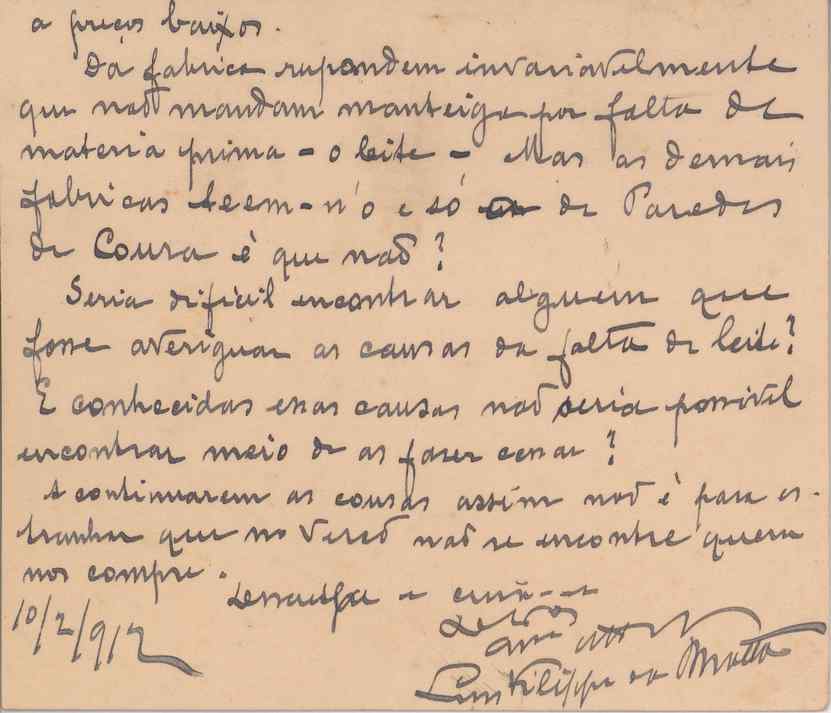 a preços baixos.
Da fabrica respondem invariavelmente
que naõ mandam manteiga por falta de
materia prima - o leite - Mas as demais
fabricas teem-n'o e só de Paredes
de Coura é que naõ?
Seria dificil encontrar alguem que
fosse averiguar as causas da falta de leite?
E conhecidas essas causas naõ seria possivel
encontrar meio de as fazer cessar?
A continuarem as cousas assim naõ é para es-
tranhar que no Veraõ naõ se encontre quem
nos compre.
Desculpe e
10/2/912
Luis Filippe da Motta